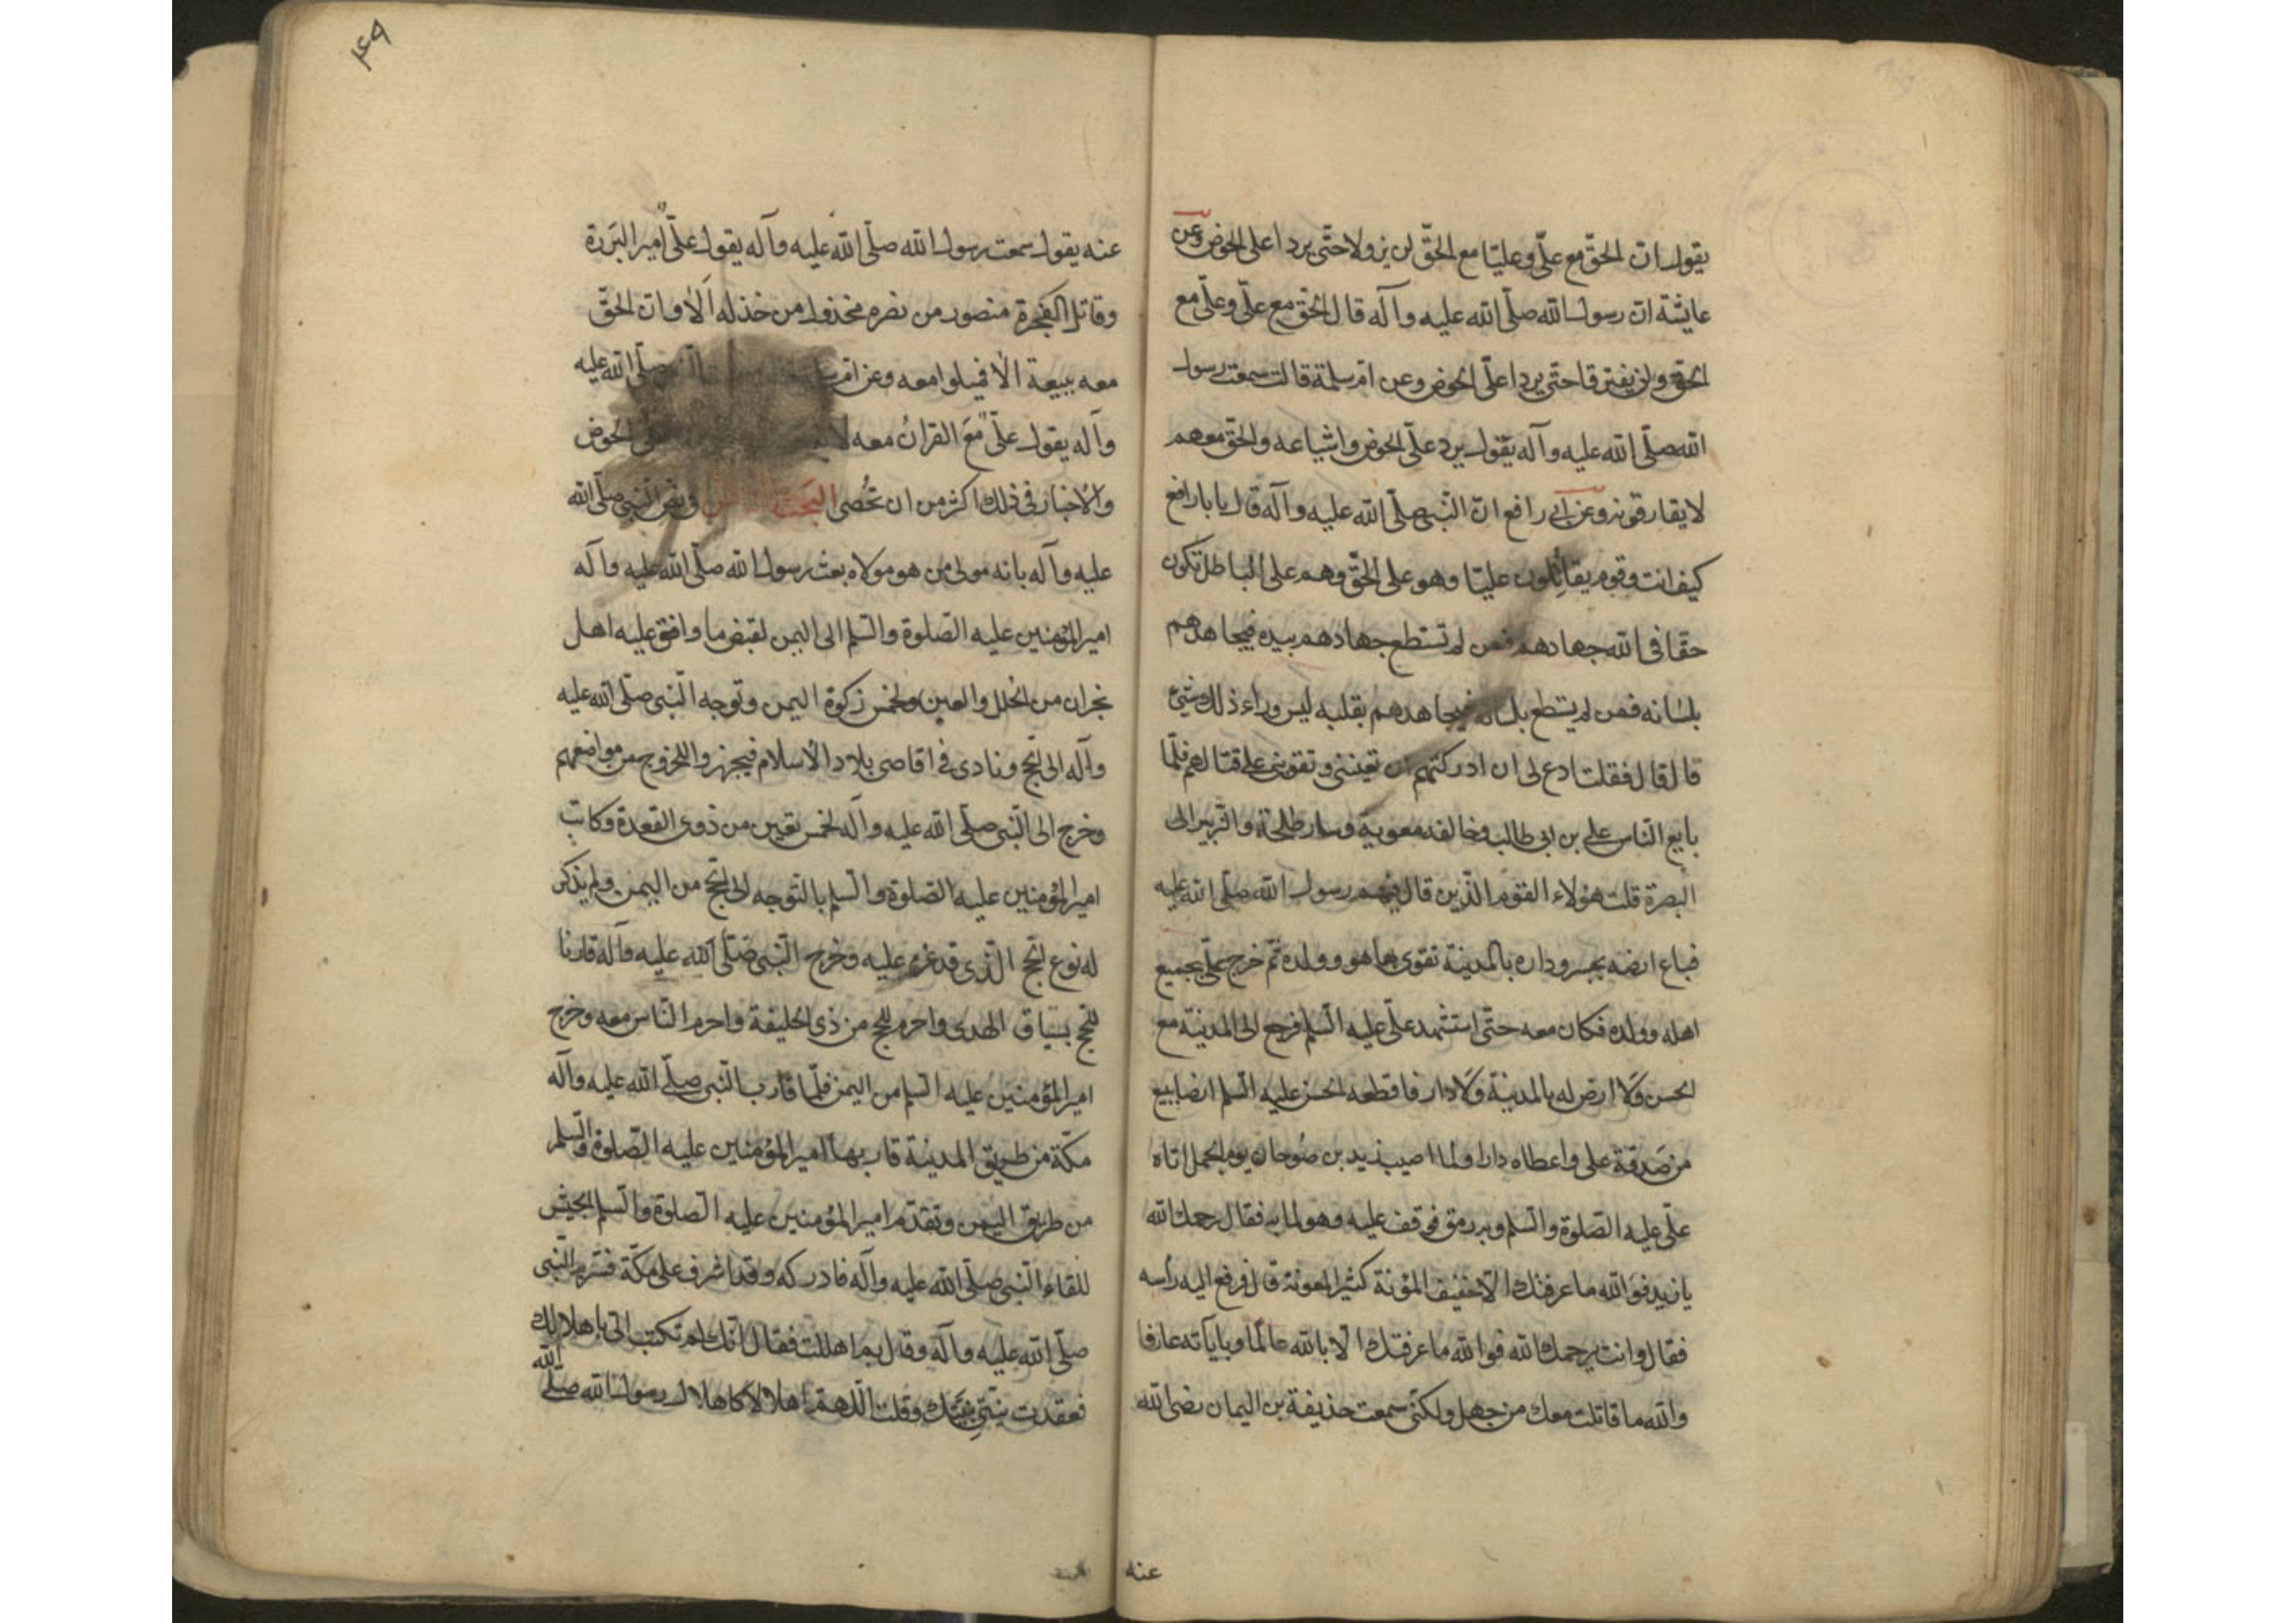 يقول ان الحقّ مع علّي وعليّا مع الحقّ لن يزولا حتّى يردا على الحوض وعن
عايشة ان رسول الله صلّى الله عليه وآله قال الحق مع علّي وعلّي مع
الحق ولن يفترقا حتى يردا علّى الحوض وعن امّ سلمة قالت سمعت رسول
الله صلّى الله عليه وآله يقول يرد علّى الحوض واشياعه والحق معهم
لا يفارقونه وعن ابي رافع انّ النّبي صلّى الله عليه وآله قال يا با رافع
كيف انت وقوم يقاتلون عليّا وهو على الحقّ وهم على الباطل تكون
حقّا فى الله جهادهم فمن لم تستطع جهادهم بيده فيجاهدهم
بلسانه فمن لم يستطع بلسانه فيجاهدهم بقلبه ليس وراء ذلك شيئ
قال قال فقلت ادع لى ان ادركتهم ان تعيننى وتقونى على قتالهم فلمّا
بايع النّاس على بن ابى طالب وخالفه معوية وسار طلحة والزبير الى
البصرة قلت هؤلاء القوم الّذين قال فيهم رسول الله صلّى الله عليه
فباع ارضه بخيبر وداره بالمدينة تقوى بها هو وولده ثمّ خرج مع علّى بجميع
اهله وولده فكان معه حتّى استشهد علّى عليه السّلم فرجع الى المدينة مع
الحسن ولا ارض له بالمدينة ولا دار فاقطعه الحسن عليه السّلم ارضا بينبع
من صدقة على واعطاه دارا ولما اصيب زيد بن صُوحان يوم الجمل اتاه
علّى عليه الصّلوة والسّلم وبه رمق فوقف عليه وهو لما به فقال رحمك الله
يا زيد فوالله ما عرفتك الّا خفيف المؤنة كثير المعونة قال فرفع اليه رأسه
فقال وانت يرحمك الله فوالله ما عرفتك الّا بالله عالمًا وبآياته عارفا
والله ما قاتلت معك من جهل ولكنّى سمعت حذيفة بن اليمان رضى الله
عنه
۴۹
عنه يقول سمعت رسول الله صلّى الله عليه وآله يقول علّى امير البررة
وقاتل الفجرة منصور من نصره مخذول من خذله الا وان الحقّ
معه يبيعة الا فميلوا معه وعن امّ صلّى الله عليه
وآله يقول علّى مع القران معه الحوض
والاخبار فى ذلك اكثر من ان تُحصى البحث فى نص النّبى صلّى الله
عليه وآله بانه مولى من هو مولاه بعث رسول الله صلّى الله عليه وآله
امير المؤمنين عليه الصّلوة والسّلم الى اليمن لقبض ما وافق عليه اهل
نجران من الحلل والعين وخمس زكوة اليمن وتوجه النّبى صلّى الله عليه
وآله الى الحّج ونادى فى اقاصى بلاد الاسلام فتجهزوا للخروج من مواضعهم
وخرج النّبى صلّى الله عليه وآله لخمس بقين من ذى القعدة وكاتب
امير المؤمنين عليه الصّلوة والسّلم بالتّوجه الى الحّج من اليمن ولم يذكر
له نوع الحّج الّذى قد عزم عليه وخرج النّبى صلّى الله عليه وآله قارنا
للحّج بسياق الهدى واحرم للحج من ذى الحليفة واحرم النّاس معه وخرج
امير المؤمنين عليه السّلم من اليمن فلمّا قارب النّبى صلّى الله عليه وآله
مكّة من طريق المدينة قاربها امير المؤمنين عليه الصّلوة والسّلم
من طريق اليمن وتقدّم امير المؤمنين عليه الصّلوة والسّلم الجيش
للقاء النّبى صلّى الله عليه وآله فادركه وقد اشرف على مكّة فسّر النّبى
صلّى الله عليه وآله وقال بما اهللت فقال انّك لم تكتب الّى باهلالك
فعقدت نيتى بنيتك وقلت اللّهم اهلالا كاهلال رسول الله صلّى الله